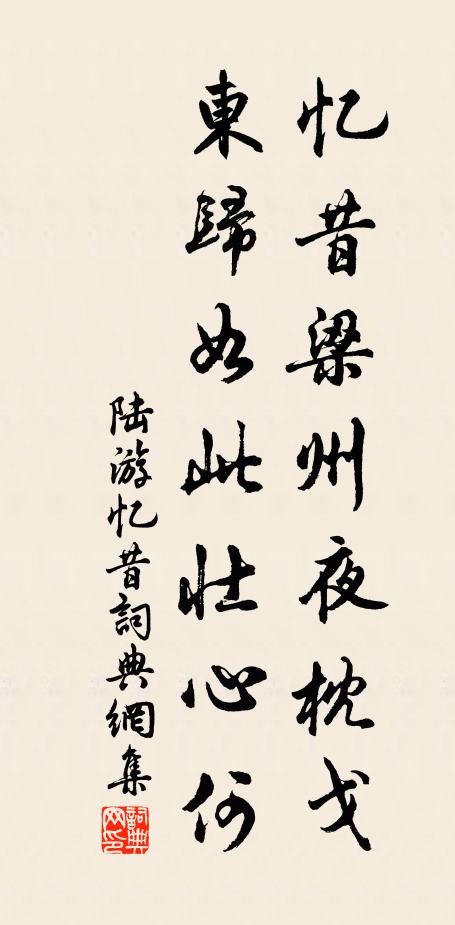 忆昔梁州夜枕戈
東歸如此壮心何
陆游忆昔詞典網集
詞典网印